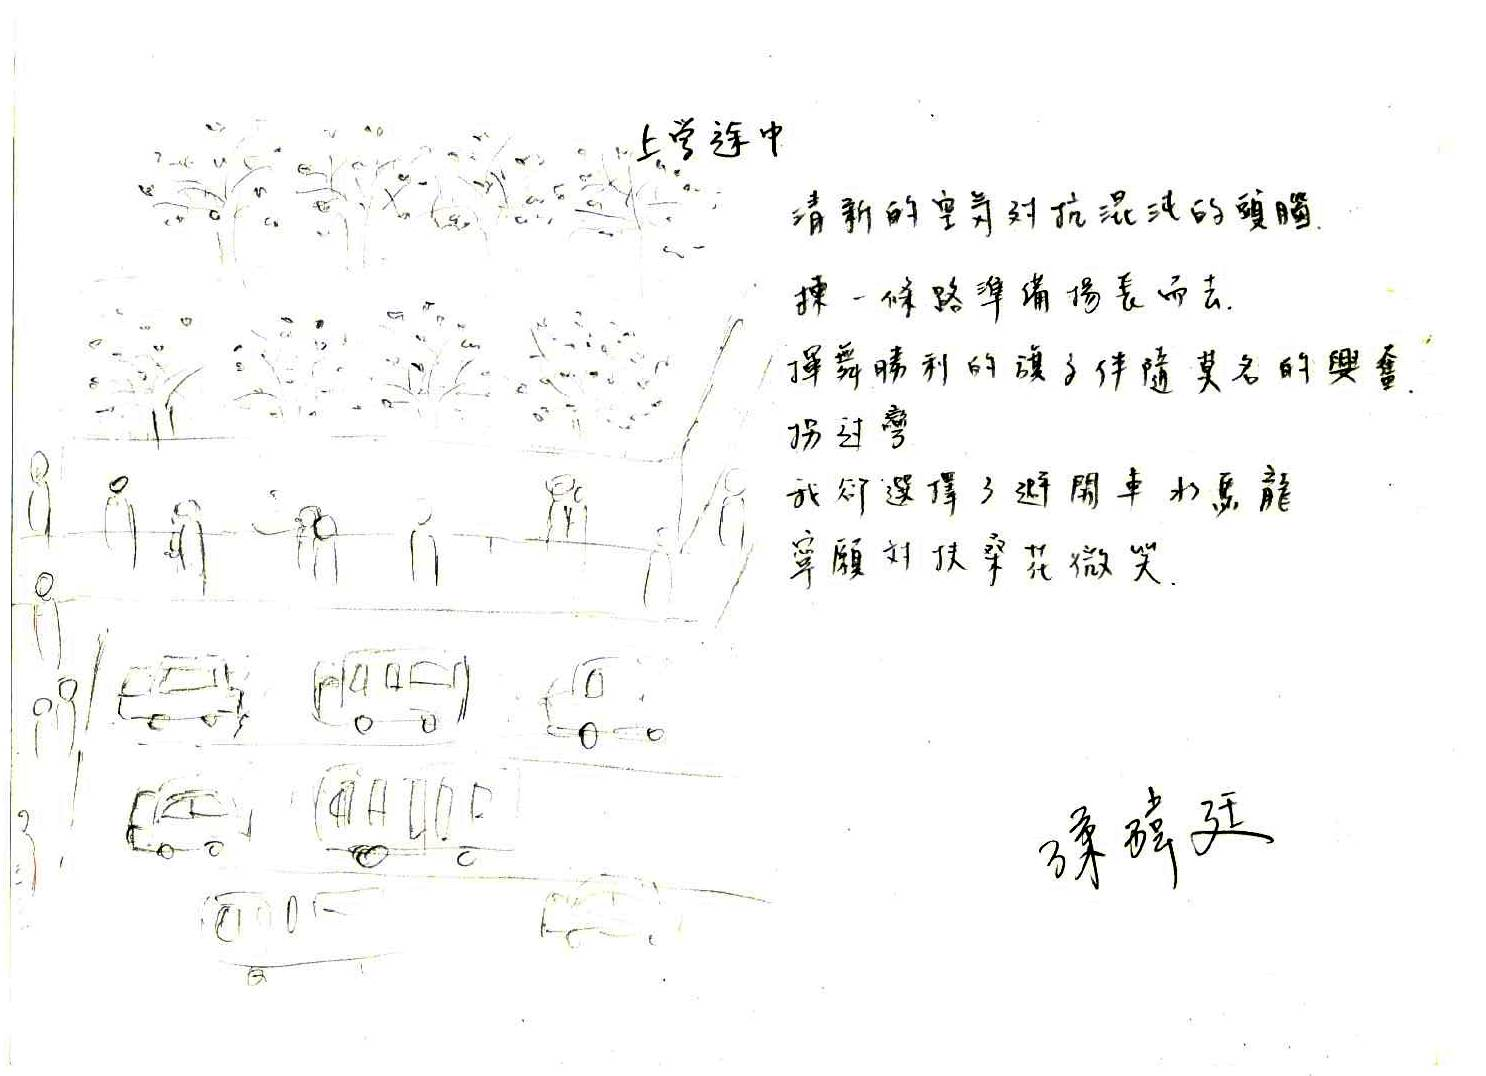 上学途中
清新的空気对抗混沌的頭腦.
揀一條路準備揚長而去.
揮舞勝利的旗子伴隨莫名的興奮.
拐过彎
我卻選擇了避開車水馬龍
寧願对扶桑花微笑.
孫瑋廷